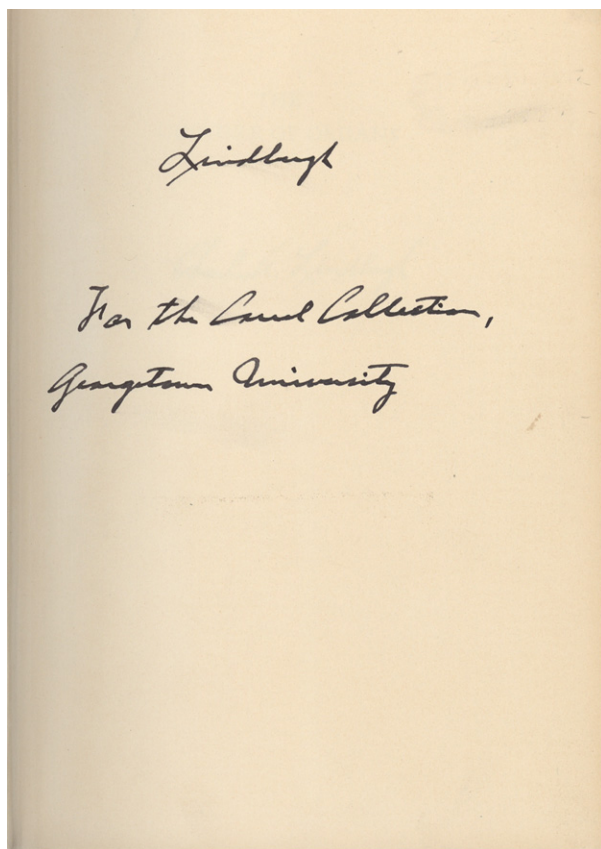 Lindbergh
For the Carrel Collection,
Georgetown University